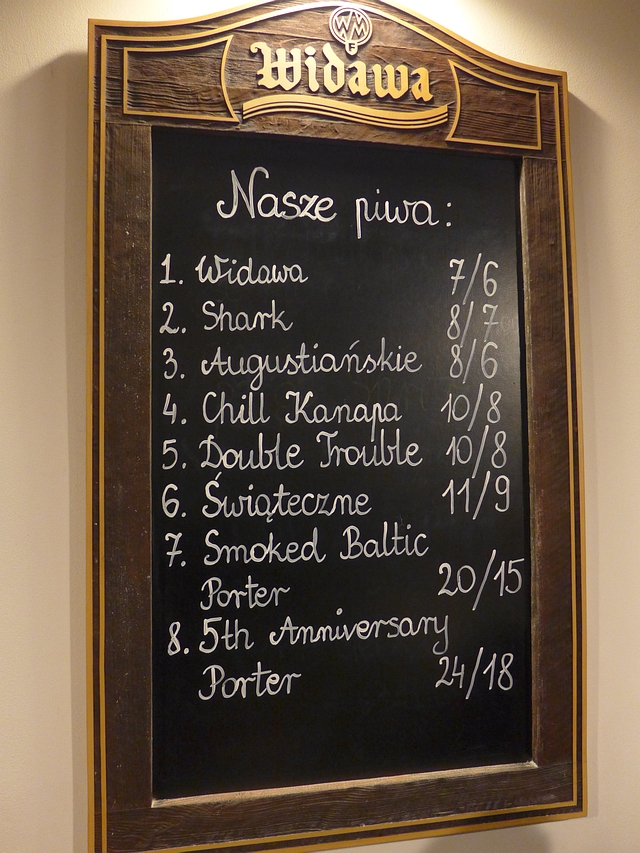 WM
Widawa
Nasze piwa:
1. Widawa 7/6
2. Shark 8/7
3. Augustiańskie 8/6
4. Chill Kanapa 10/8
5. Double Trouble 10/8
6. Świąteczne 11/9
7. Smoked Baltic
Porter 20/15
8. 5th Anniversary
Porter 24/18